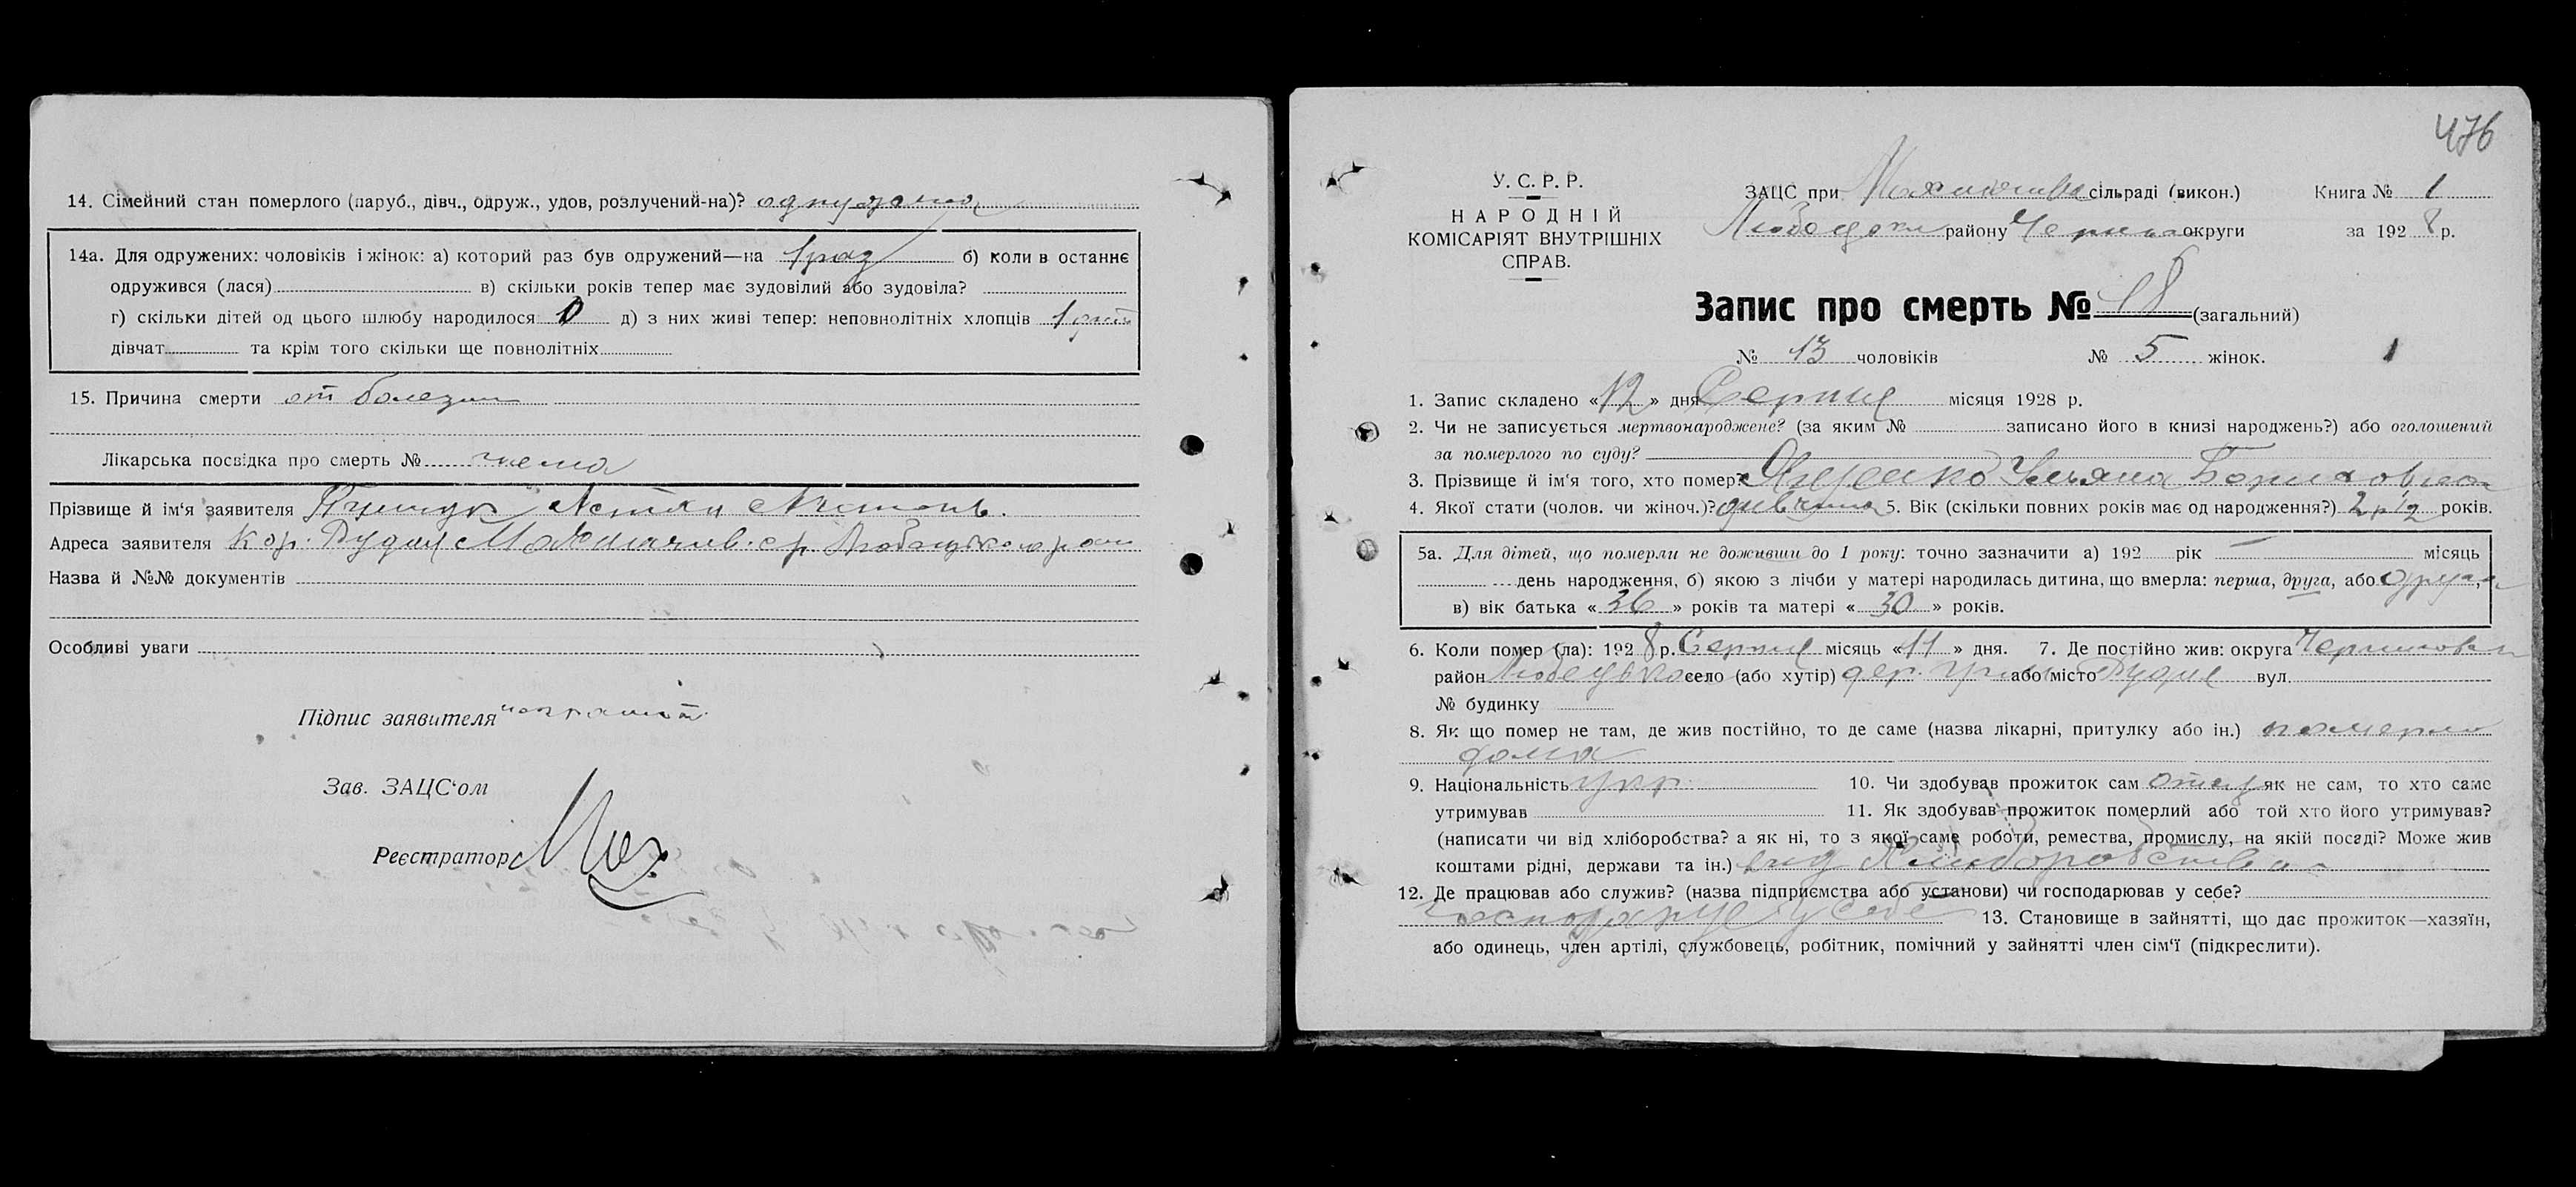 14. Сімейний стан померлого (паруб., дівч., одруж., удов, розлучений-на)? одружена
14а. Для одружених: чоловіків і жінок: а) которий раз був одружений—на 1 раз б) коли в останнє
одружився (лася) в) скільки років тепер має зудовілий або зудовіла?
г) скільки дітей од цього шлюбу народилося д) з них живі тепер: неповнолітніх хлопців 1
дівчат та крім того скільки ще повнолітніх
15. Причина смерти от болезни
Лікарська посвідка про смерть № нема
Прізвище й ім'я заявителя
Адреса заявителя Рудня
Назва й №№ документів
Особливі уваги
Підпис заявителя
Зав. ЗАЦС'ом
Реєстратор
476
У. С. Р. Р.
НАРОДНІЙ
КОМІСАРІЯТ ВНУТРІШНІХ
СПРАВ.
ЗАЦС при сільраді (викон.) Книга № 1
району округи за 1928 р.
Запис про смерть № 18 (загальний)
№ 13 чоловіків № 5 жінок. 1
1. Запис складено «12» дня Серпня місяця 1928 р.
2. Чи не записується мертвонароджене? (за яким № записано його в книзі народжень?) або оголошений
за померлого по суду?
3. Прізвище й ім'я того, хто помер? Ульяна
4. Якої стати (чолов. чи жіноч.)? дивчина 5. Вік (скільки повних років має од народження?) років.
5а. Для дітей, що померли не доживши до 1 року: точно зазначити а) 192 рік — місяць
день народження, б) якою з лічби у матері народилась дитина, що вмерла: перша, друга, або друга
в) вік батька «36» років та матері «30» років.
6. Коли помер (ла): 1928 р. Серпня місяць «11» дня. 7. Де постійно жив: округа
район село (або хутір) дер. або місто Рудня вул.
№ будинку
8. Як що помер не там, де жив постійно, то де саме (назва лікарні, притулку або ін.) померла
дома
9. Національність укр. 10. Чи здобував прожиток сам отец як не сам, то хто саме
утримував 11. Як здобував прожиток померлий або той хто його утримував?
(написати чи від хліборобства? а як ні, то з якої саме роботи, ремества, промислу, на якій посаді? Може жив
коштами рідні, держави та ін.) від Хліборобства
12. Де працював або служив? (назва підприємства або установи) чи господарював у себе?
господарує у себе 13. Становище в зайнятті, що дає прожиток—хазяїн,
або одинець, член артілі, службовець, робітник, помічний у зайнятті член сім'ї (підкреслити).